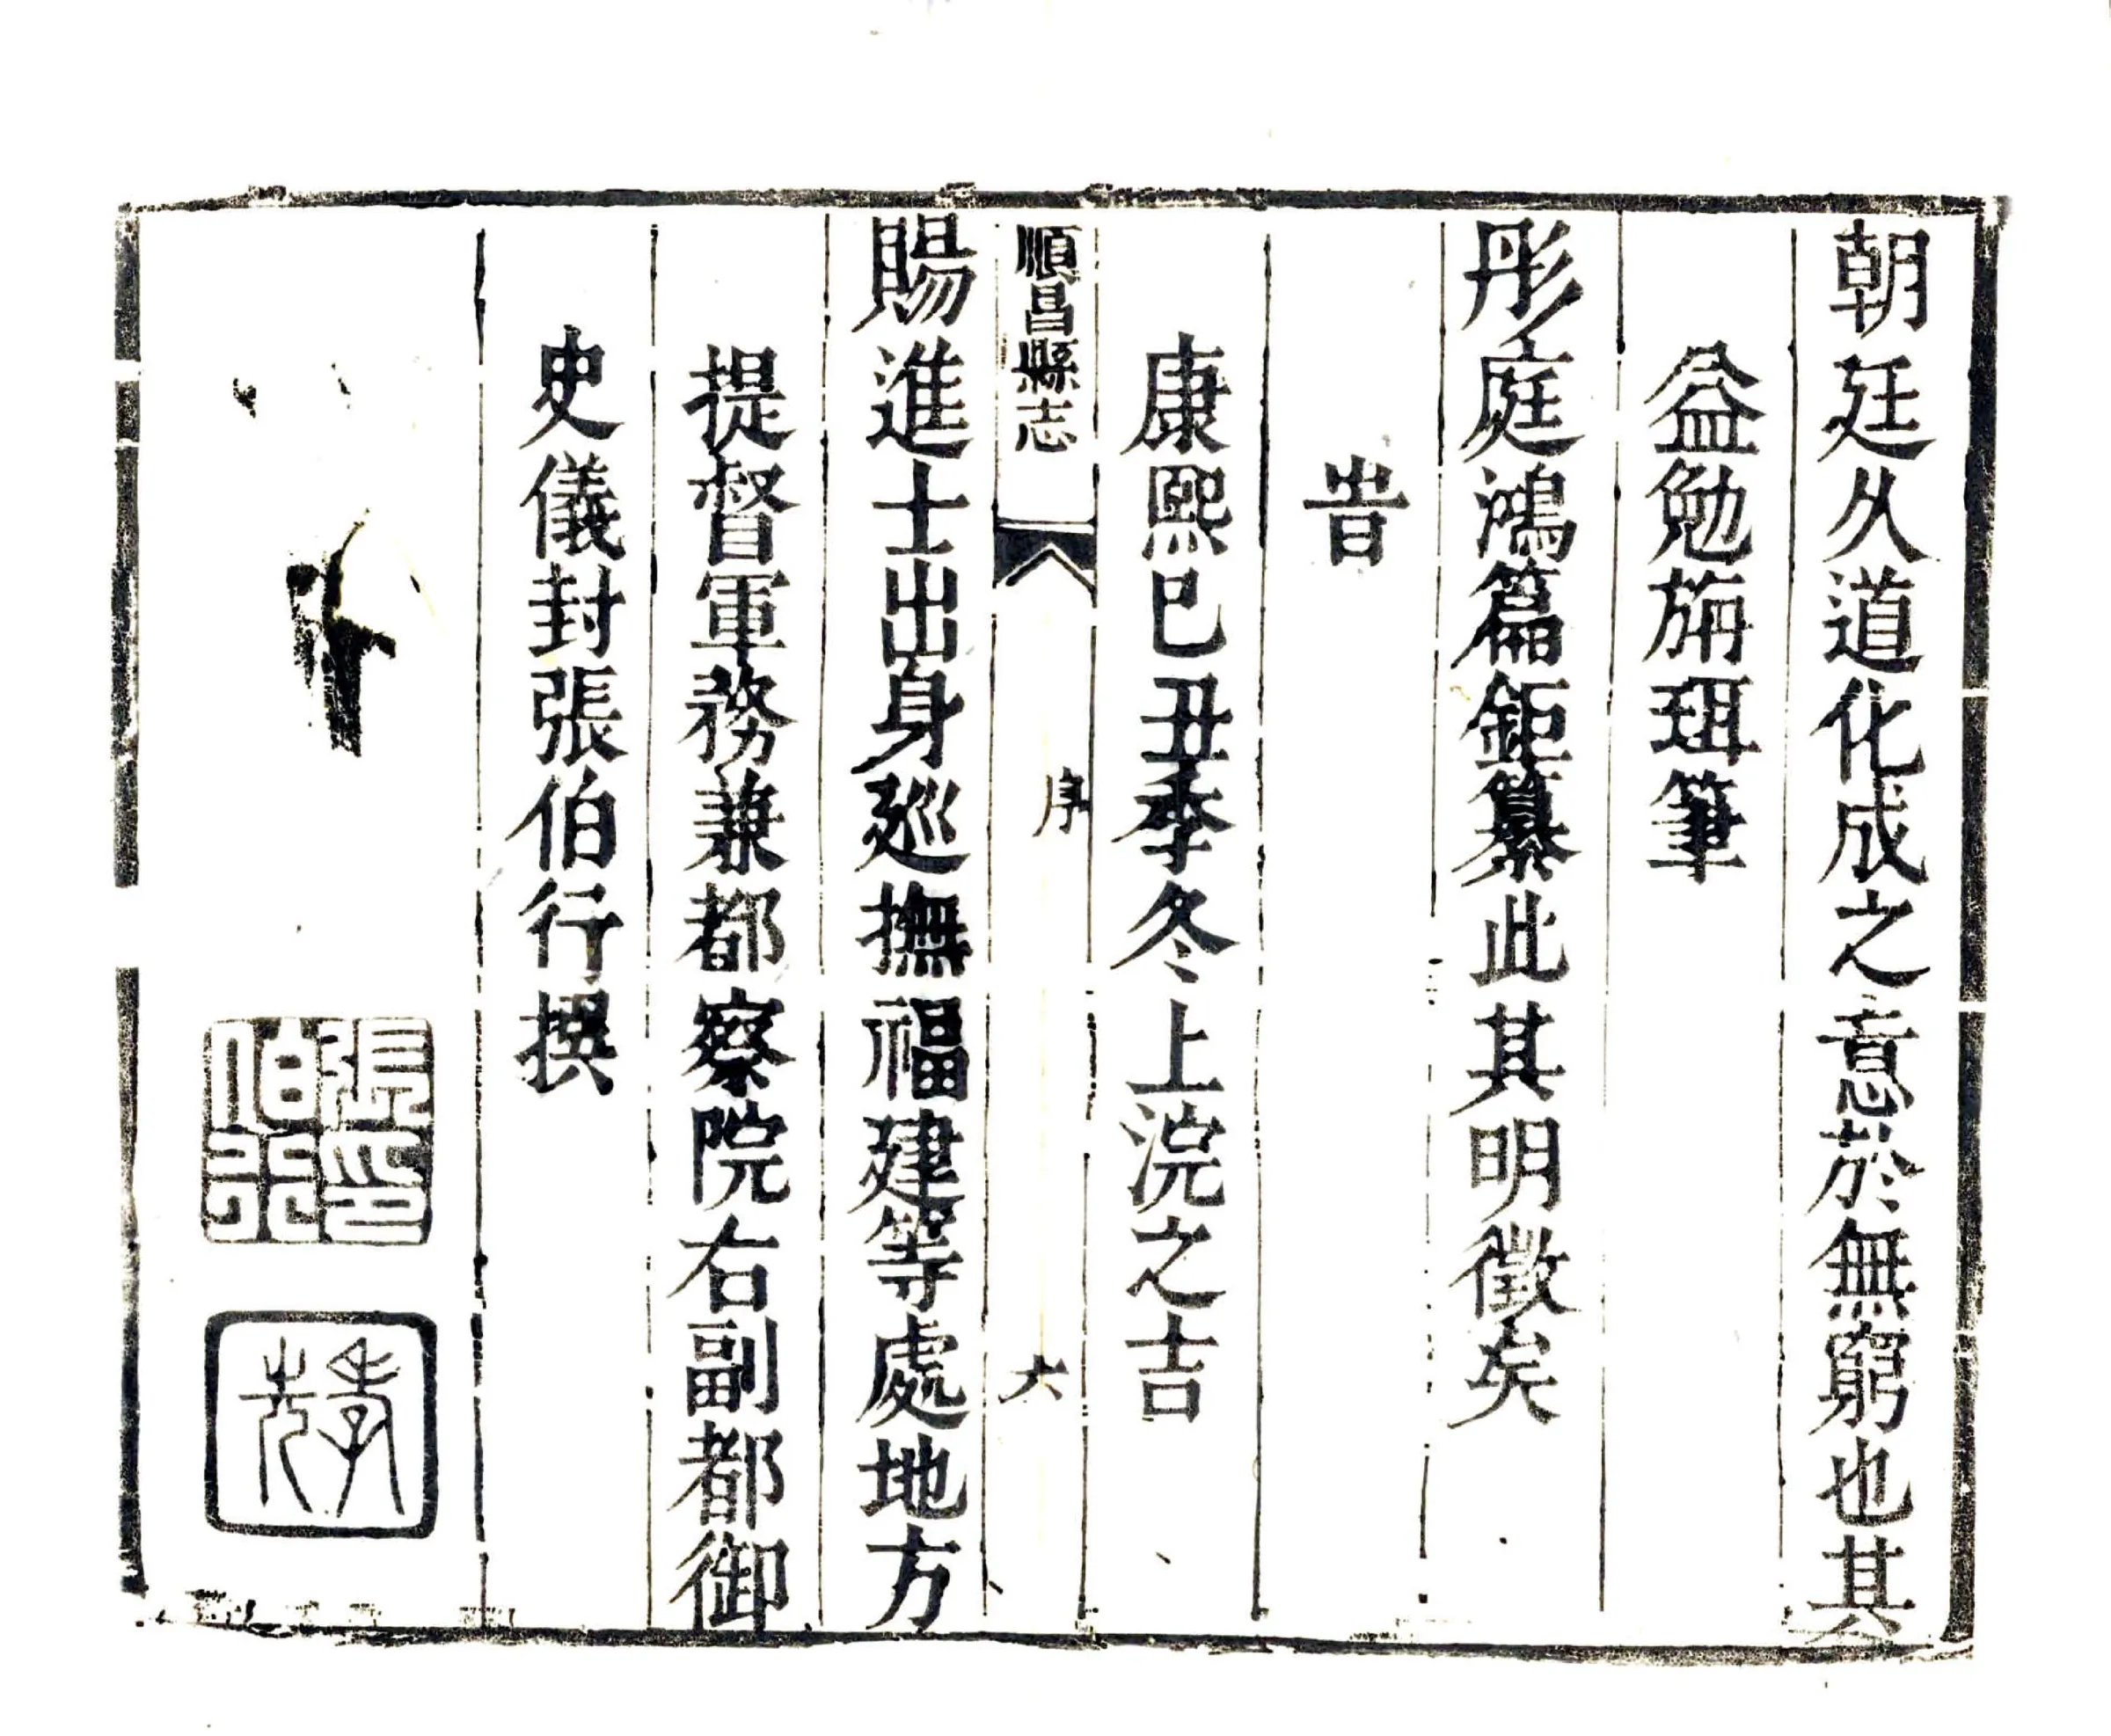 朝廷久道化成之意於無窮也其
益勉旃珥筆
彤庭鴻篇鉅纂此其明徵矣
旹
康熙己丑季冬上浣之吉
順昌縣志
序
六
賜進士出身廵撫福建等處地方
提督軍務兼都察院右副都御
史儀封張伯行撰
張伯行印
孝先